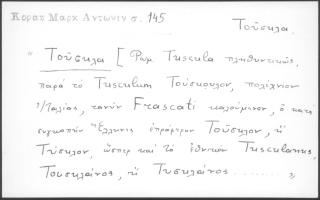 Κοραῆ Μάρκ Ἀντωνῖν σ. 145
Τοῦσκλα.
" Τοῦσκλα [Ῥωμ. Tuscula πληθυντικῶς,
παρὰ τὸ Tusculum Τούσκουλον, πολίχνιον
Ἰταλίας, τανῦν Frascati καλούμενον, ὃ κατὰ
συγκοπὴν Ἕλληνες ἐπρόφερον Τοῦσκλον, ἢ
Τύσκλον, ὥσπερ καὶ τὸ ἐθνικὸν Tusculanus,
Τουσκλάνος, ἢ Τυσκλάνος ........ "